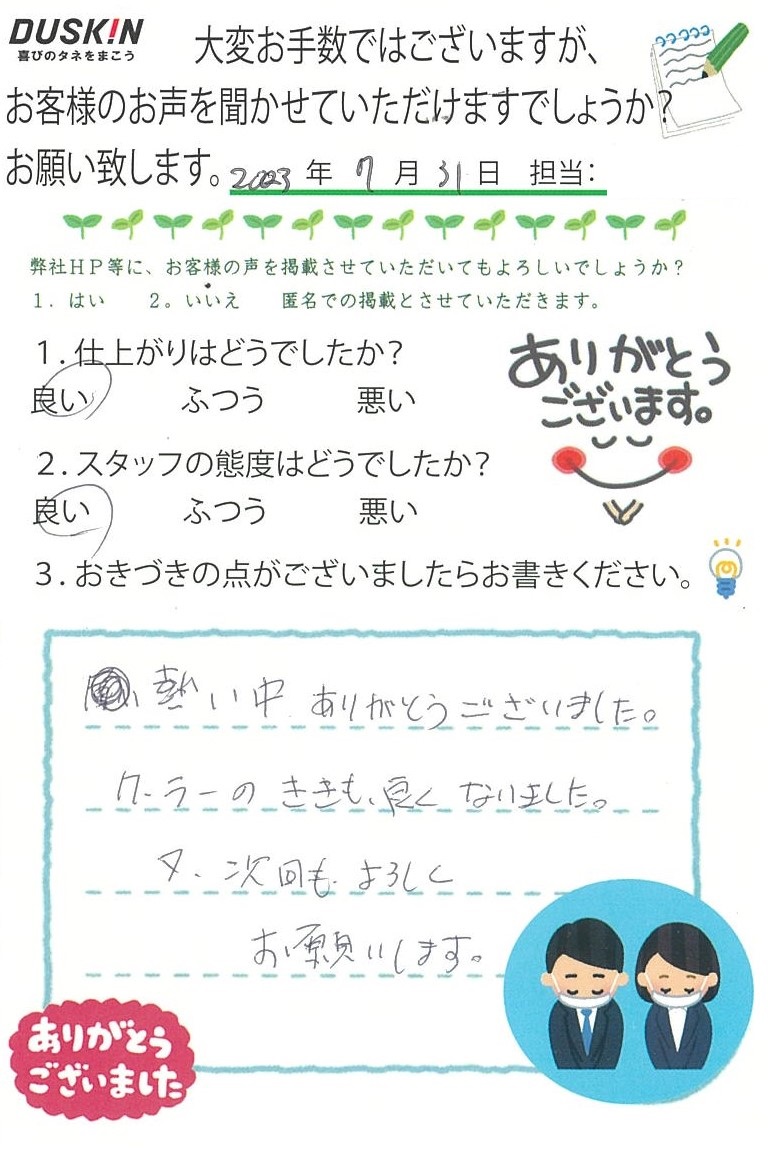 DUSK!N
喜びのタネをまこう
大変お手数ではございますが、
お客様のお声を聞かせていただけますでしょうか?
お願い致します。2023年 7月31日 担当:
弊社HP等に、お客様の声を掲載させていただいてもよろしいでしょうか?
1. はい 2。いいえ 匿名での掲載とさせていただきます。
1.仕上がりはどうでしたか?
良い ふつう 悪い
ありがとう
ございます。
2.スタッフの態度はどうでしたか?
良い ふつう 悪い
3.おきづきの点がございましたらお書きください。
熱い中 ありがとうございました。
クーラーの ききも、良く なりました。
又、次回も よろしく
お願いします。
ありがとう
ございました